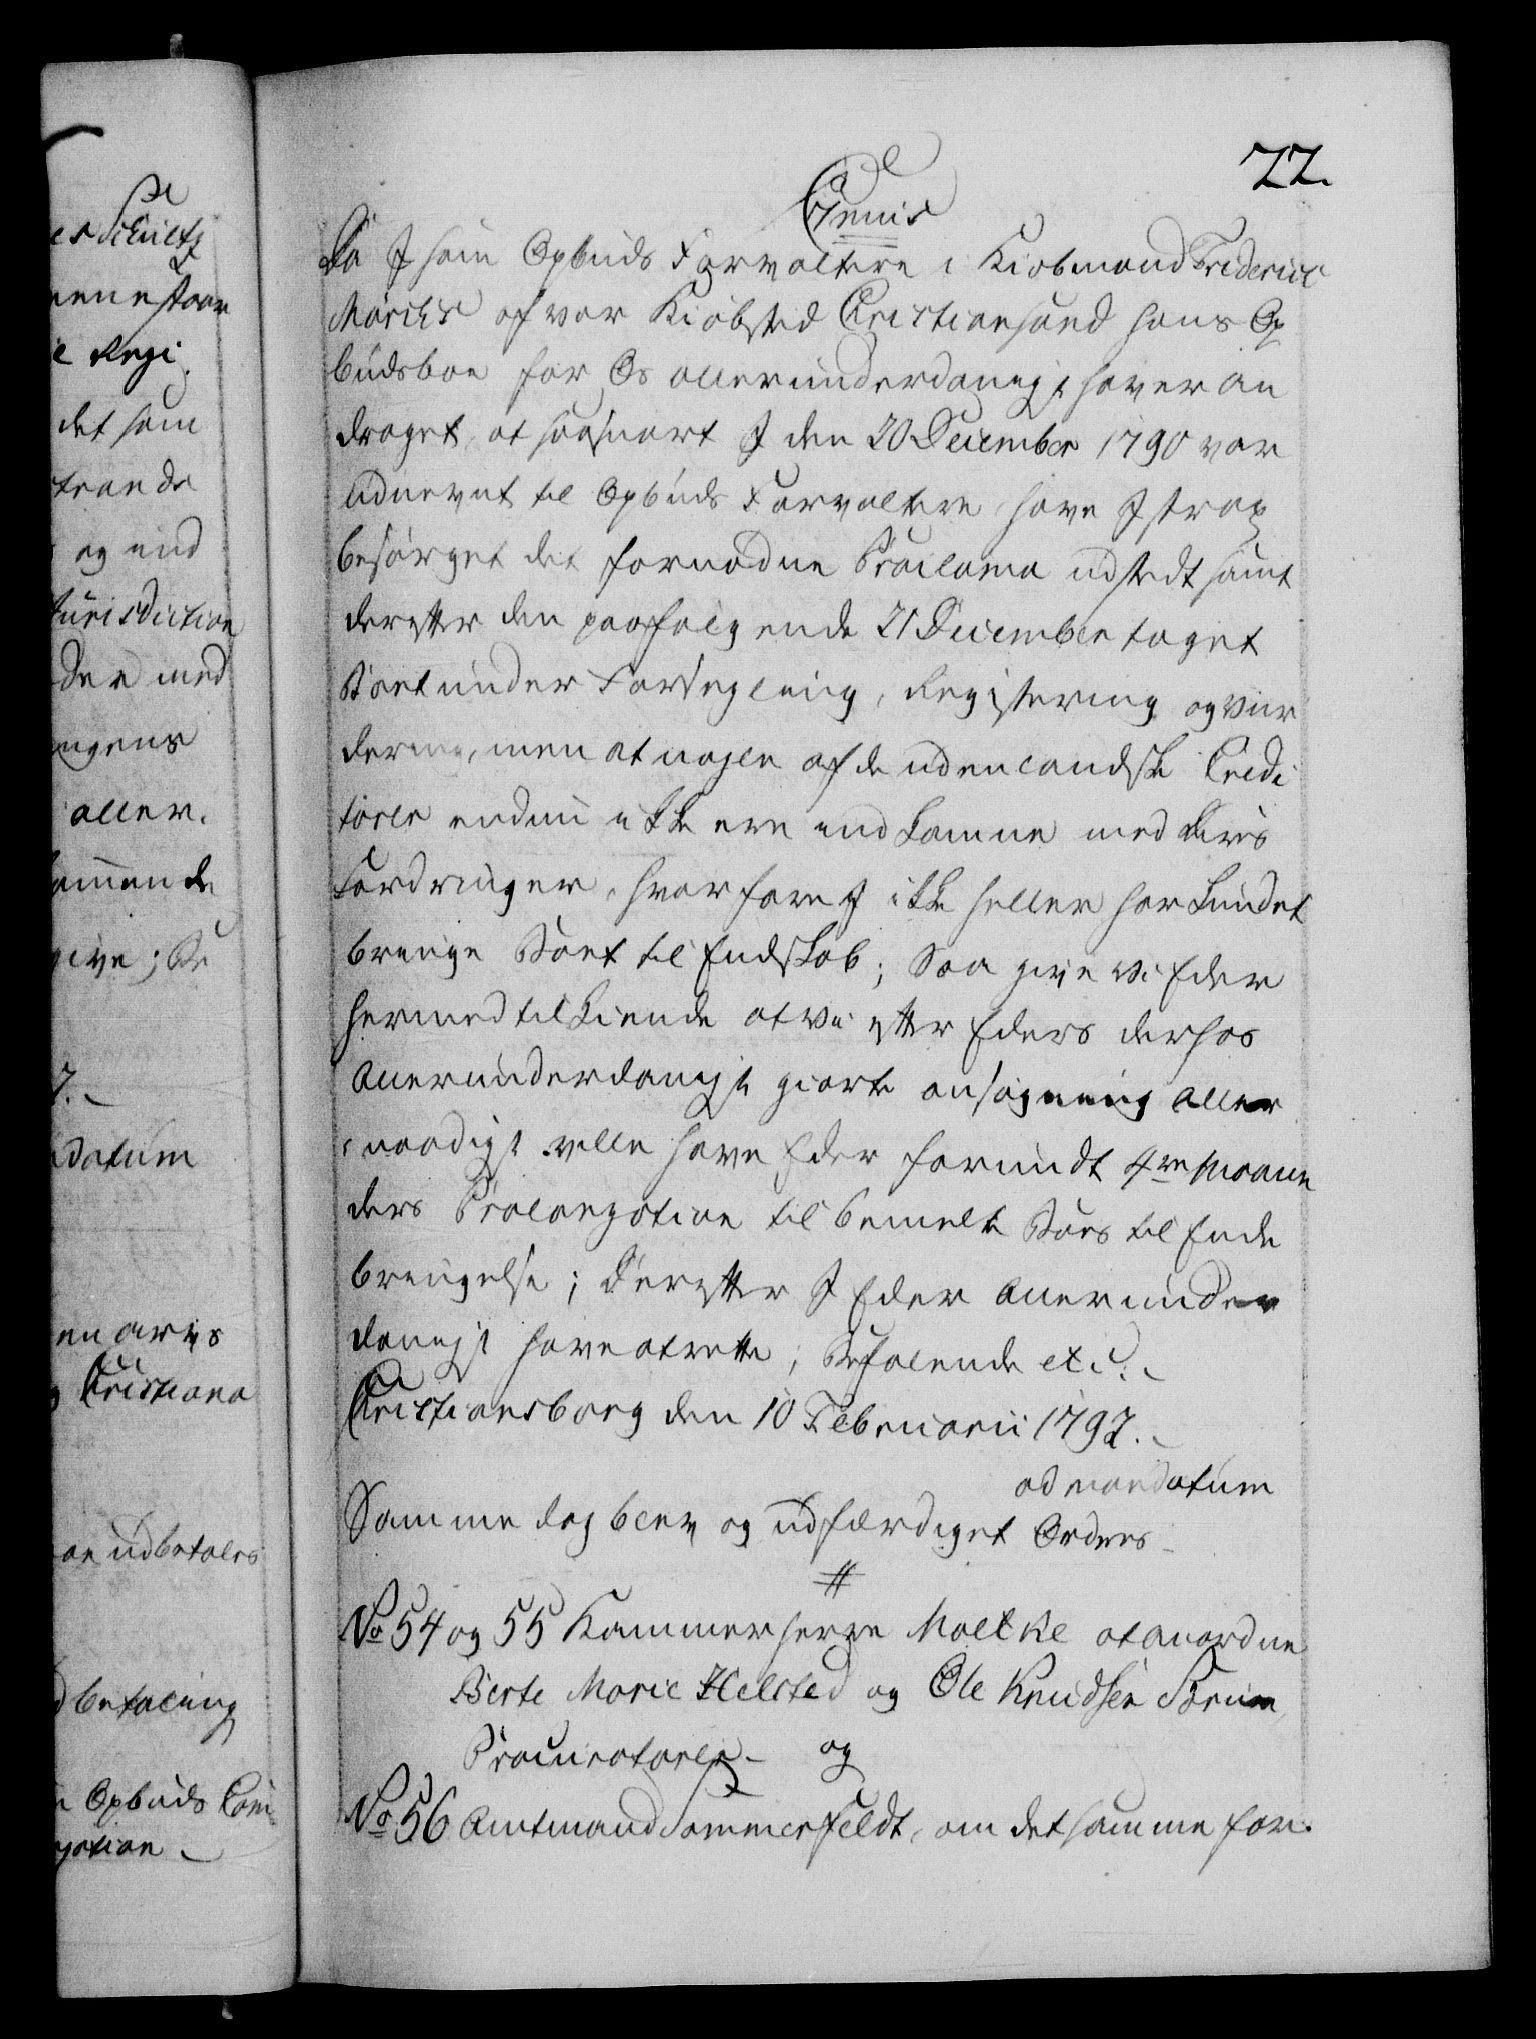 22.
Gunis
Da I som Opbuds Forvaltere i Kiøbmand Friderich
Mørchs af vor Kiøbsted Christiansand hans Op
budsboe for Os allerunderdanigst haver an
draget, at saasnart I den 20 December 1790 var
udnevnt til Opbuds Forvaltere, have I strax
besørget det fornødne Proclama udstedt samt
derefter den paafølgende 21 December taget
Boet under Forsegling, Registering og Vur
dering, men at nogle af de udenlandske Credi
torer endnu ikke ere indkomne med deres
Fordringer, hvorfore I ikke heller har kundet
bringe Boet til Endskab; Saa give Vi Eder
hermed tilkiende at Vi efter Eders derhos
allerunderdanigst giorte ansøgning aller
naadigst ville have Eder forundt 4re Maane
ders Prolongation til bemelte Boes til Ende
bringelse; Derefter I Eder allerunder
danigst have at rette; Befalende etc:
Christiansborg den 10 Februarii 1792.
ad mandatum
Samme dag blev og udfærdiget Ordres
No 54 og 55 Kammerherre Moltke at anordne
Berte Marie Helsted og Ole Knudsen Sørum
Procuratorer og
No 56 Amtmand Sommerfeldt, om det samme for
det som
og end
Jurisdiction
der med
aller.
give; Be
datum
Christiana
udbetales
betaling
Opbuds Com